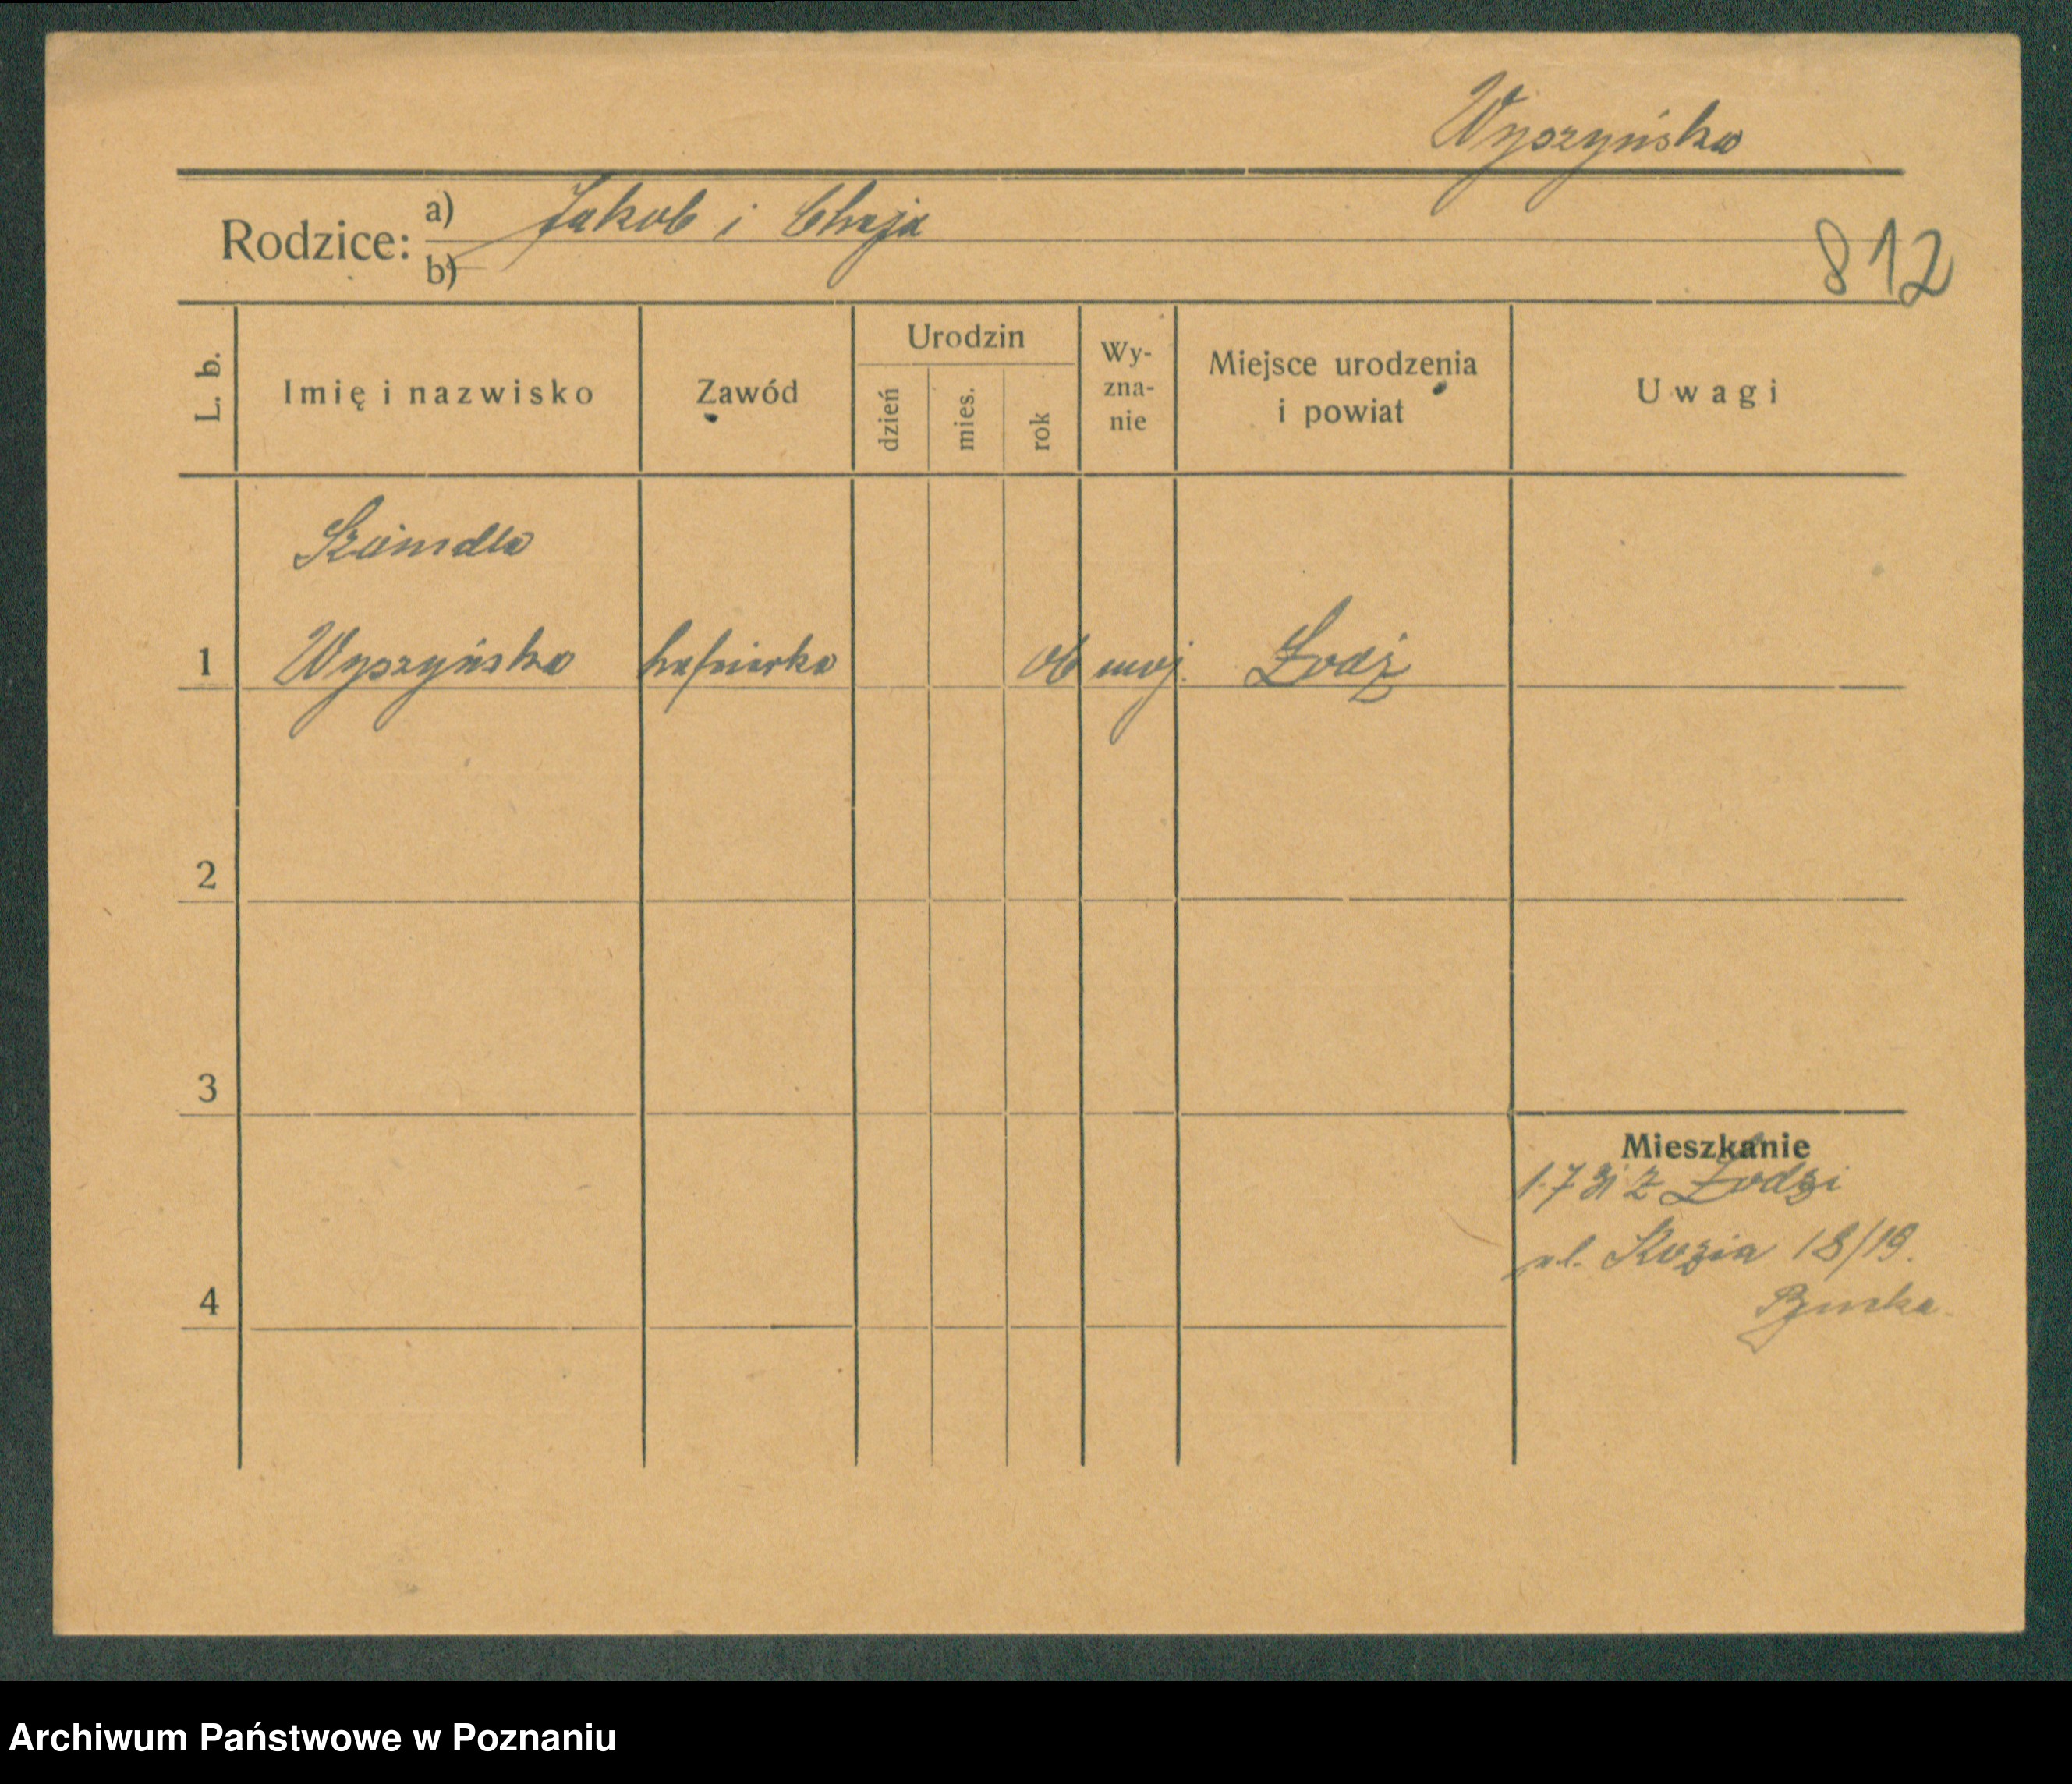 Wyszyńska
Rodzice:
a) Jakob i Chaja
b)
812
L. b.
Imię i nazwisko
Zawód
Urodzin
dzień
mies.
rok
Wy-
zna-
nie
Miejsce urodzenia
i powiat
Uwagi
Szaindla
1 Wyszyńska hafciarka 06 moj. Łodź
2
3
Mieszkanie
1.7 31 z Łodzi
ul. Kozia 18/19.
4
Archiwum Państwowe w Poznaniu